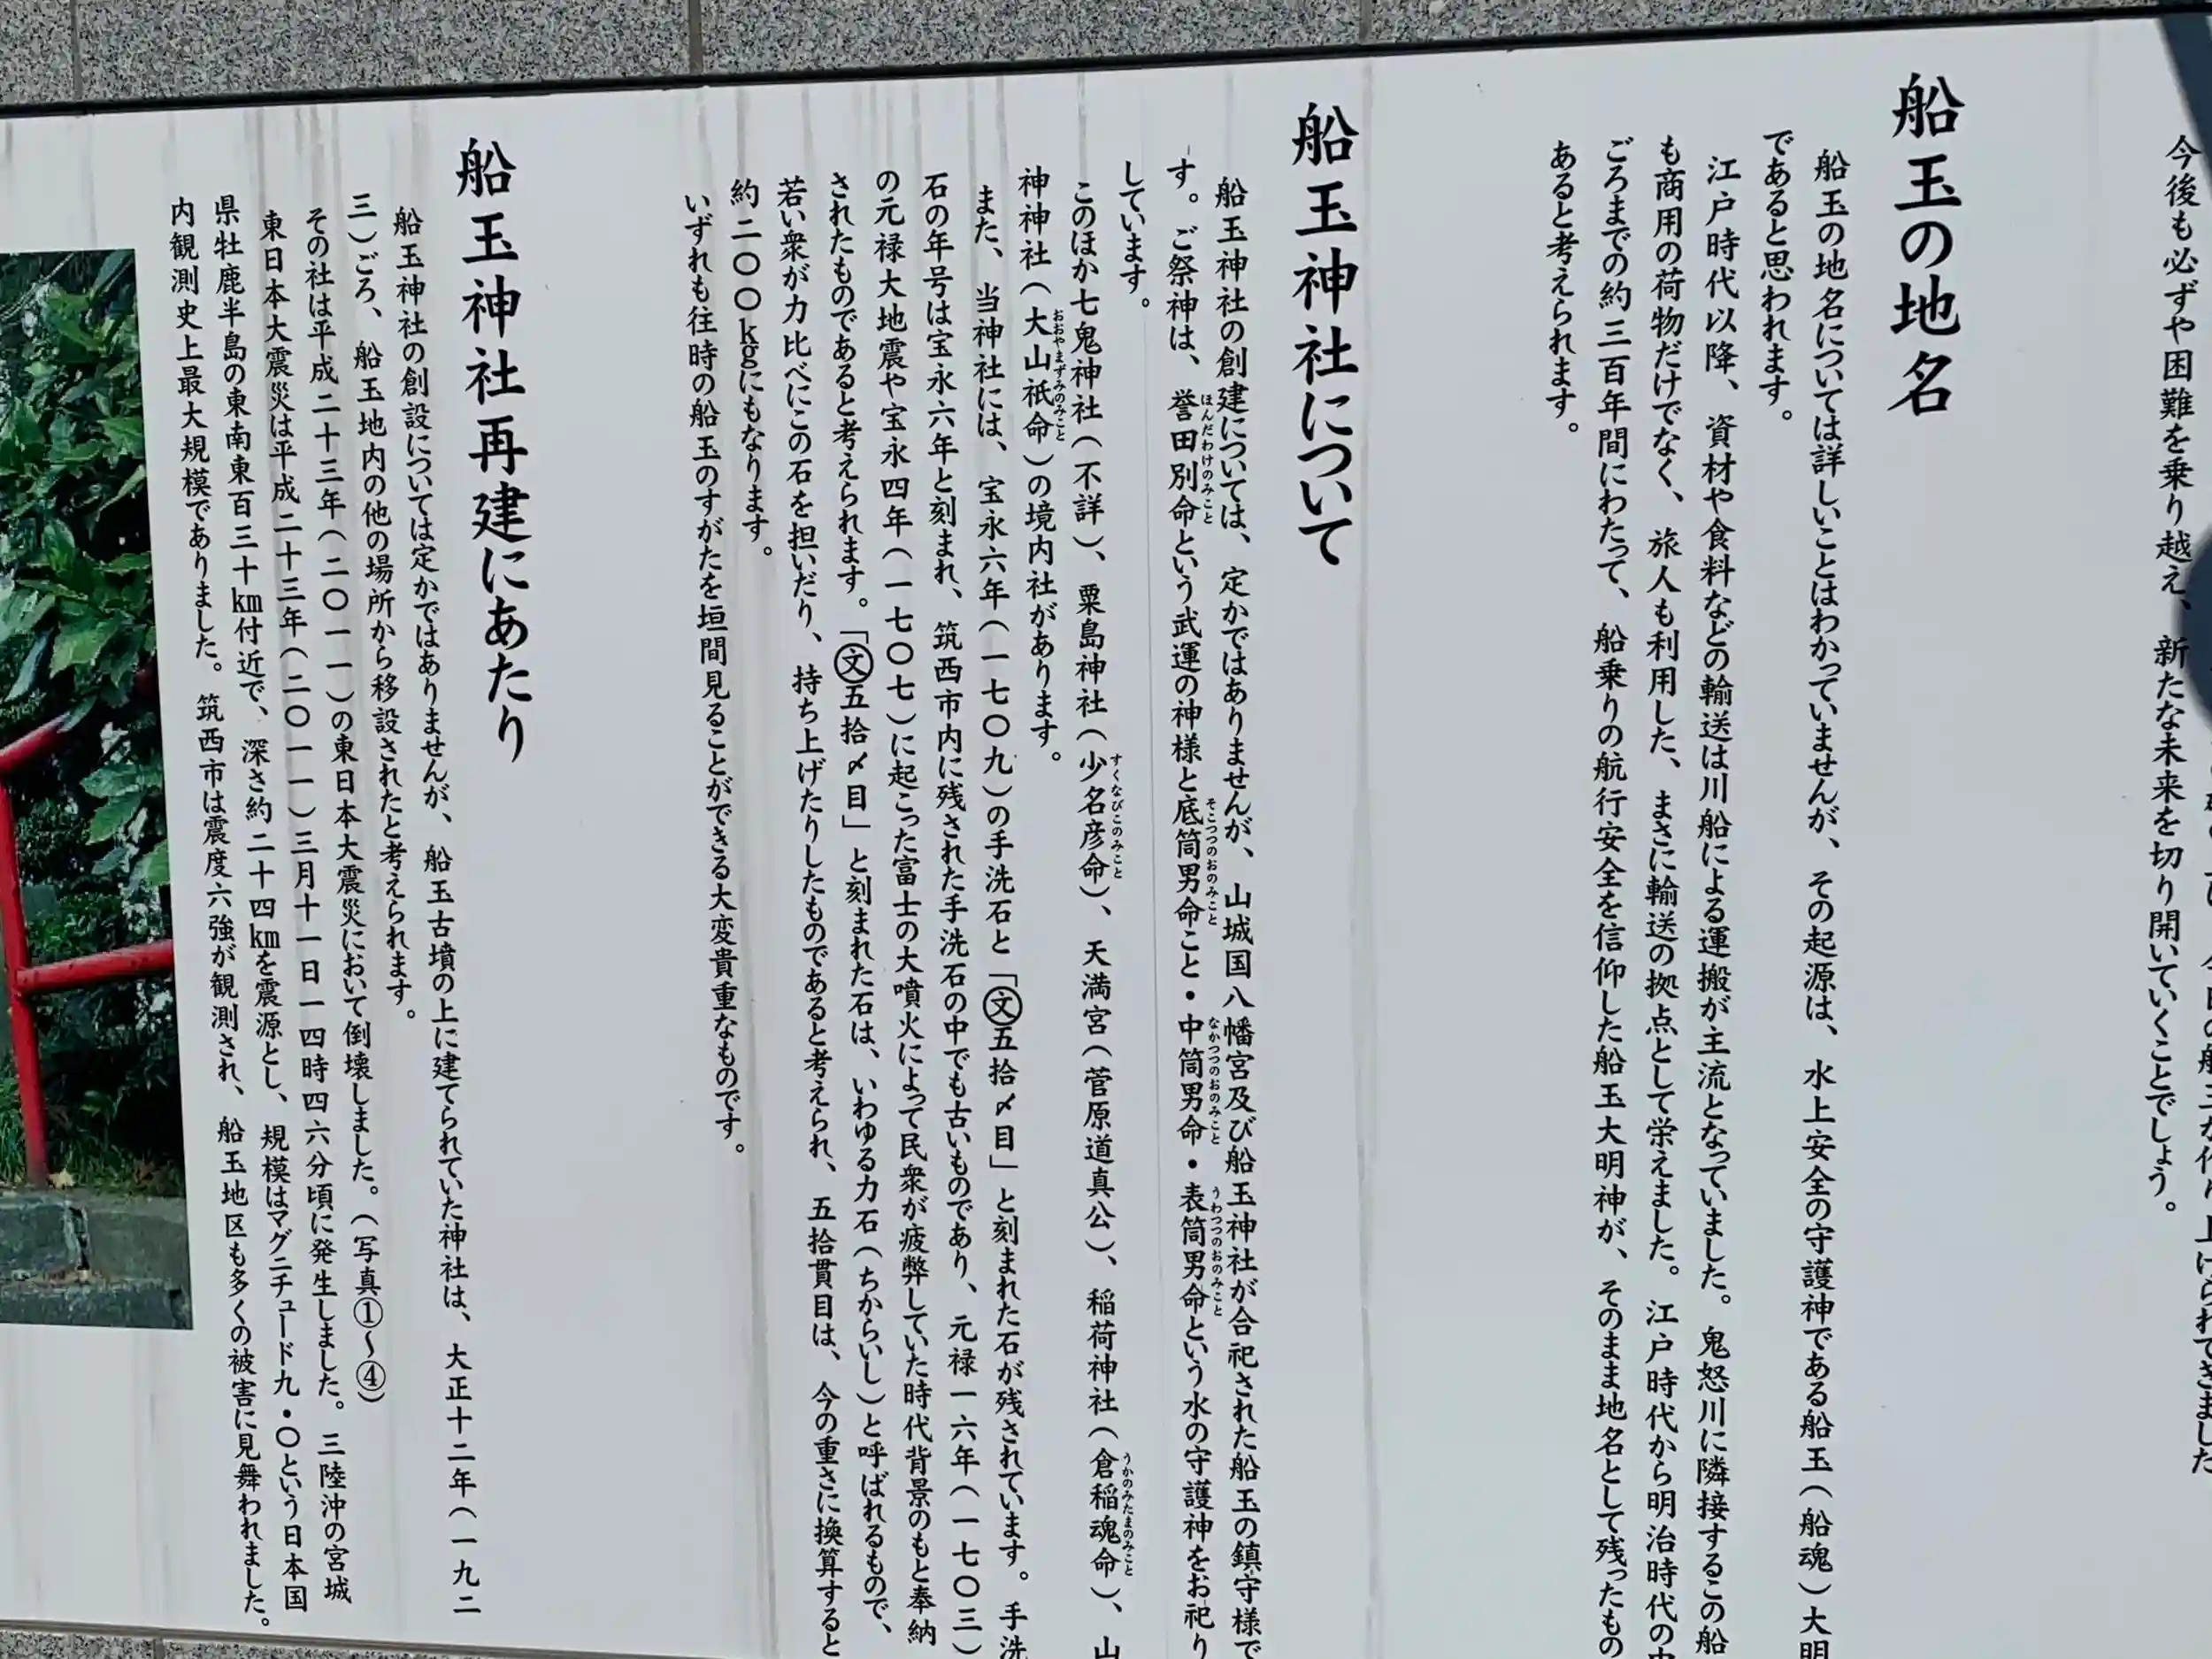 今後も必ずや困難を乗り越え、新たな未来を切り開いていくことでしょう。
船玉の地名
船玉の地名については詳しいことはわかっていませんが、その起源は、水上安全の守護神である船玉(船魂)大明
であると思われます。
江戸時代以降、資材や食料などの輸送は川船による運搬が主流となっていました。鬼怒川に隣接するこの船
も商用の荷物だけでなく、旅人も利用した、まさに輸送の拠点として栄えました。江戸時代から明治時代の中
ごろまでの約三百年間にわたって、船乗りの航行安全を信仰した船玉大明神が、そのまま地名として残ったもの
あると考えられます。
船玉神社について
船玉神社の創建については、定かではありませんが、山城国八幡宮及び船玉神社が合祀された船玉の鎮守様で
す。ご祭神は、誉田別命(ほんだわけのみこと)という武運の神様と底筒男命(そこつつのおのみこと)こと・中筒男命(なかつつのおのみこと)・表筒男命(うわつつのおのみこと)という水の守護神をお祀り
しています。
このほか七鬼神社(不詳)、粟島神社(少名彦命(すくなびこのみこと))、天満宮(菅原道真公)、稲荷神社(倉稲魂命(うかのみたまのみこと))、山
神神社(大山祇命(おおやまずみのみこと))の境内社があります。
また、当神社には、宝永六年(一七〇九)の手洗石と「㊛五拾〆目」と刻まれた石が残されています。手洗
石の年号は宝永六年と刻まれ、筑西市内に残された手洗石の中でも古いものであり、元禄一六年(一七〇三)
の元禄大地震や宝永四年(一七〇七)に起こった富士の大噴火によって民衆が疲弊していた時代背景のもと奉納
されたものであると考えられます。「文五拾〆目」と刻まれた石は、いわゆる力石(ちからいし)と呼ばれるもので、
若い衆が力比べにこの石を担いだり、持ち上げたりしたものであると考えられ、五拾貫目は、今の重さに換算すると
約二〇〇kgにもなります。
いずれも往時の船玉のすがたを垣間見ることができる大変貴重なものです。
船玉神社再建にあたり
船玉神社の創設については定かではありませんが、船玉古墳の上に建てられていた神社は、大正十二年(一九二
三)ごろ、船玉地内の他の場所から移設されたと考えられます。
その社は平成二十三年(二〇一一)の東日本大震災において倒壊しました。(写真①〜④)
東日本大震災は平成二十三年(二〇一一)三月十一日一四時四六分頃に発生しました。三陸沖の宮城
県牡鹿半島の東南東百三十km付近で、深さ約二十四kmを震源とし、規模はマグニチュード九・〇という日本国
内観測史上最大規模でありました。筑西市は震度六強が観測され、船玉地区も多くの被害に見舞われました。